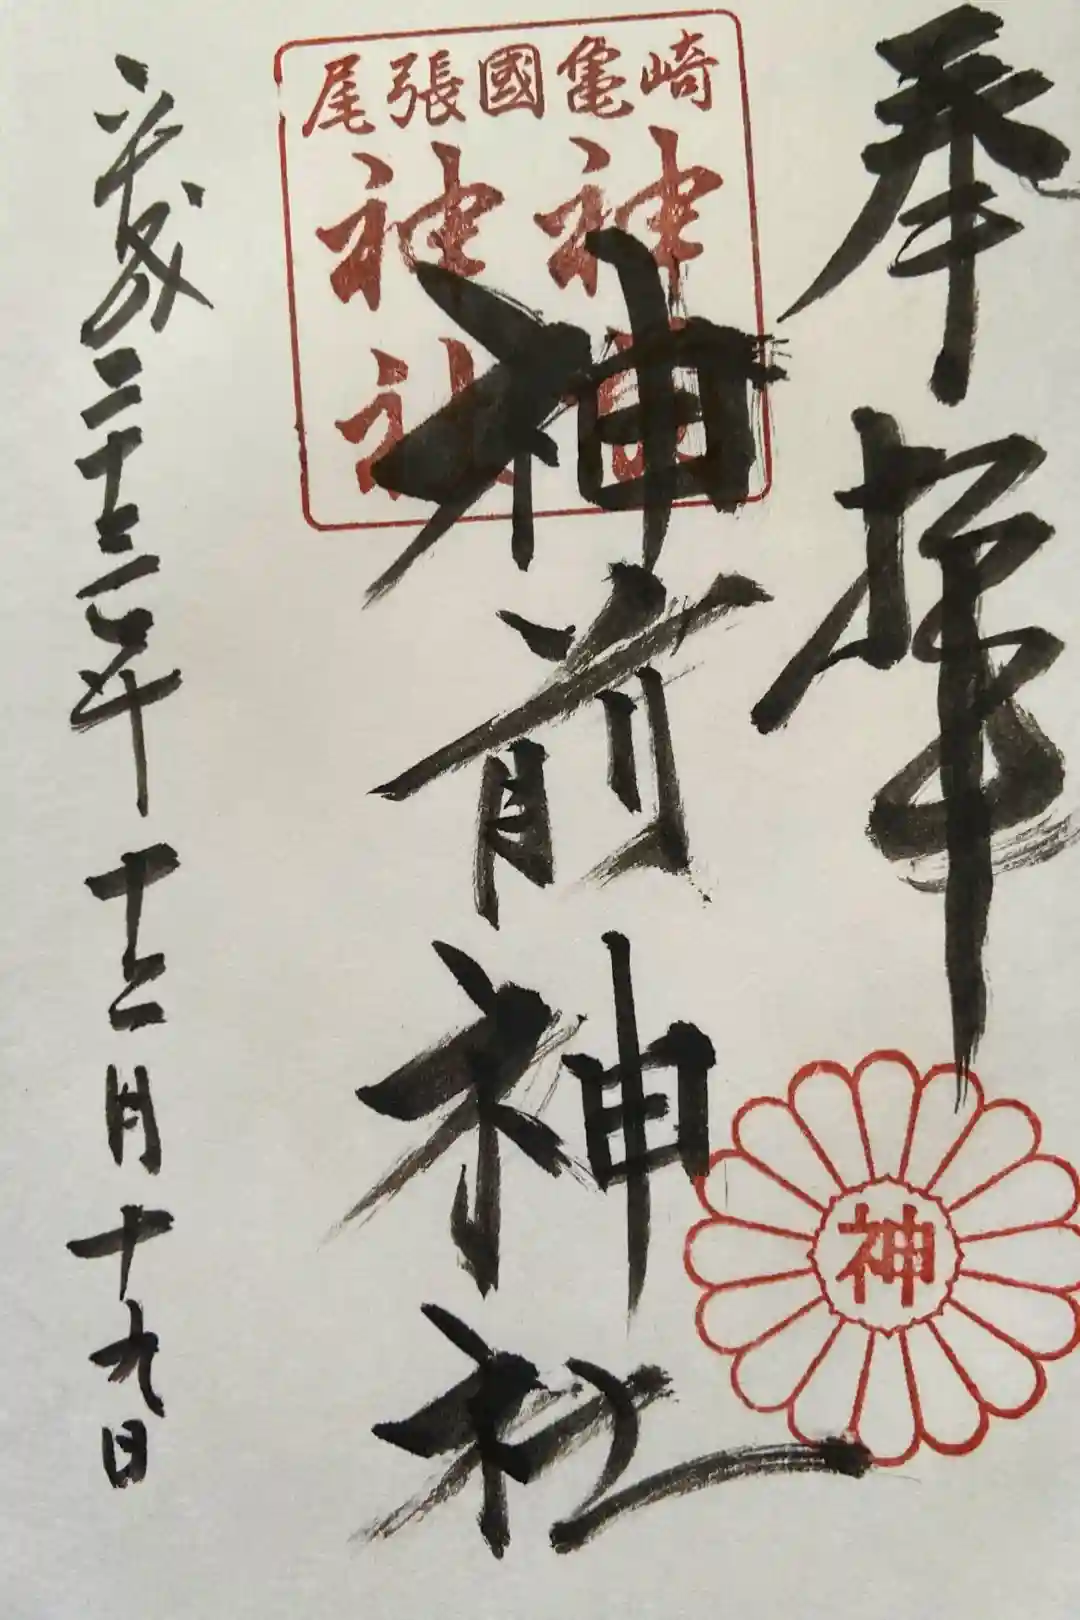 奉拝
尾張國亀崎
神前
神社
神前神社
神
平成二十二年十二月十九日